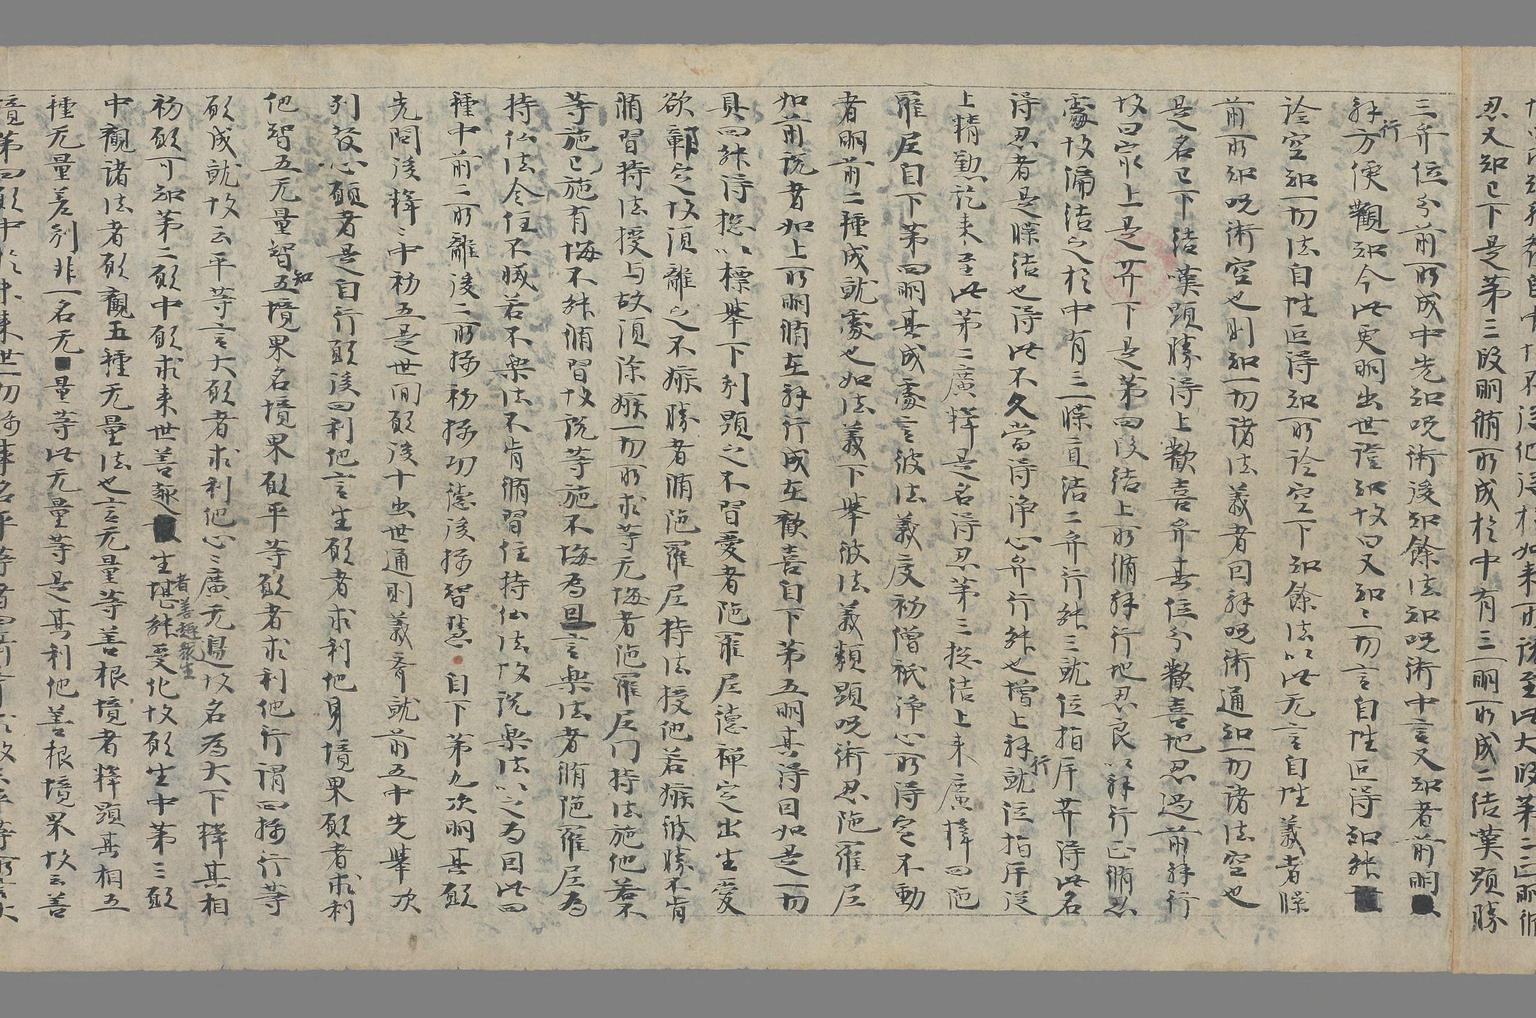 忍又知已下是第三段明脩所成於中有三一明所成二結嘆顯勝
三弁位分前所成中先知呪術後知餘法知呪術中言又知者前明
解行方便觀知今此更明出世證知故曰又知知一切言自性叵得知能
詮空知一切法自性叵得知所詮空下知餘法以此无言自性義者牒
前所知呪術空也則知一切諸法義者同解呪術通知一切諸法空也
是名已下結嘆顯勝得上歡喜弁其位分歡喜地忍過前解行
故曰最上是菩薩下是第四段結上所脩解行地忍良以解行正脩忍
處故偏結之於中有三一牒言直結二弁行能三就位指斥菩薩得此名
得忍者是牒結也得此不久當得淨心弁行能也增上解行就位指斥從
上精勤訖來至此第二廣釋是名得忍第三捴結上來廣釋四陁
羅尼自下第四明其成處言彼法義度初僧祇淨心所得定不動
者明前二種成就處也如法義下舉彼法義類顯呪術忍陁羅尼
如前說者如上所明脩在解行成在歡喜自下第五明其得因如是一切
具四能得捴以標舉下別顯之不習愛者陁羅尼德禪定出生愛
欲鄣定故須離之不嫉勝者脩陁羅尼持法授他若嫉彼勝不肯
脩習持法授与故須除嫉一切所求等无悔者陁羅尼門持法施他若不
等施已施有悔不能脩習故說等施不悔為因言樂法者脩陁羅尼為
持仏法令住不滅若不樂法不肯脩習住持仏法故說樂法以之為因此四
種中前二所離後二所攝初攝功德後攝智慧自下第九次明其願
先問後釋釋中初五是世間願後十出世通則義齊就前五中先舉次
列發心願者是自行願後四利他言生願者求利他身境界願者求利
他智五无量智知五境界名境界願平等願者求利他行謂四攝行等
願成就故云平等言大願者求利他心心廣无邊故名為大下釋其相
初願可知第二願中願求來世善趣生者善趣眾生堪能受化故願生中第三願
中觀諸法者願觀五種无量法也言无量等善根境者釋顯其相五
種无量差別非一名无量等此无量等是其利他善根境界故云善